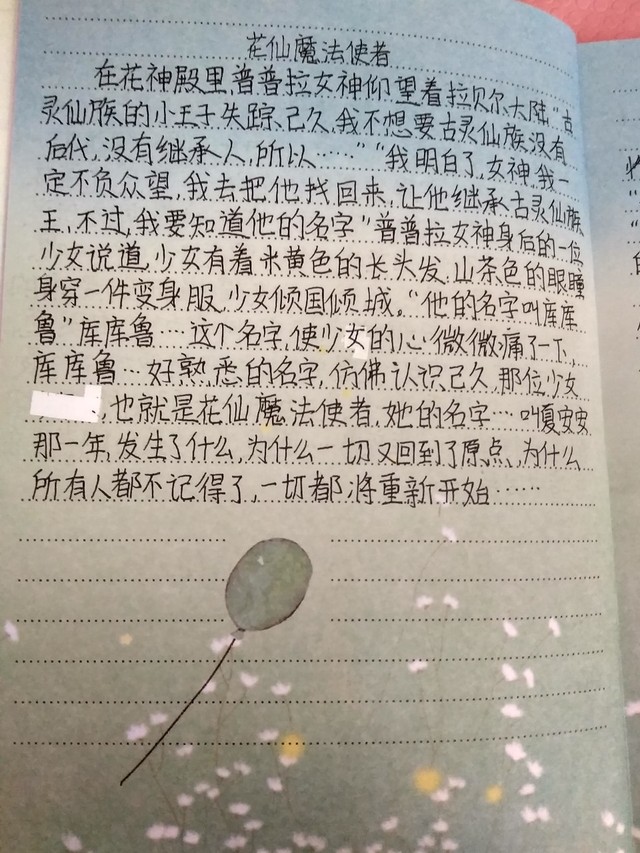 花仙魔法使者
在花神殿里,普普拉女神仰望着拉贝尔大陆“古
灵仙族的小王子失踪已久,我不想要古灵仙族没有
后代,没有继承人,所以……”“我明白了,女神,我一
定不负众望,我去把他找回来,让他继承古灵仙族
王,不过,我要知道他的名字”普普拉女神身后的一位
少女说道,少女有着米黄色的长头发,山茶色的眼瞳
身穿一件变身服,少女倾国倾城。“他的名字叫库库
鲁”库库鲁…这个名字,使少女的心微微痛了一下,
库库鲁…好熟悉的名字,仿佛认识已久,那位少女
,也就是花仙魔法使者,她的名字…叫夏安安
那一年,发生了什么,为什么一切又回到了原点,为什么
所有人都不记得了,一切都将重新开始……